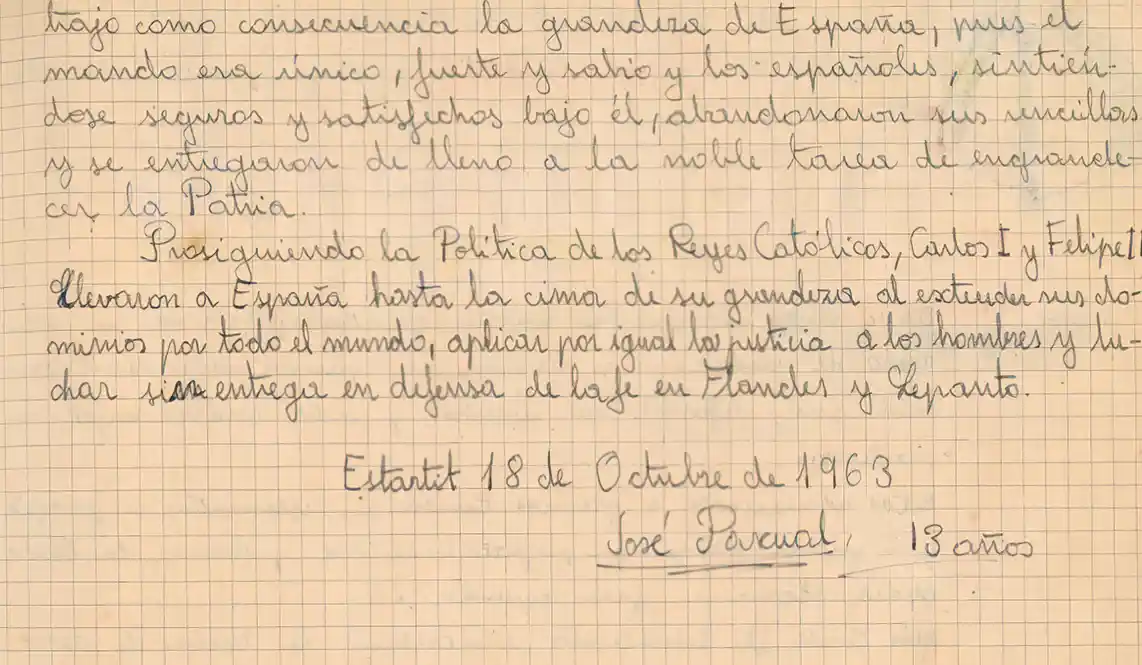 trajo como consecuencia la grandeza de España, pues el
mando era único, fuerte y sabio y los españoles, sintién-
dose seguros y satisfechos bajo él, abandonaron sus rencillas
y se entregaron de lleno a la noble tarea de engrande-
cer la Patria.
Prosiguiendo la Política de los Reyes Católicos, Carlos I y Felipe II
llevaron a España hasta la cima de su grandeza al extender sus do-
minios por todo el mundo, aplicar por igual la justicia a los hombres y lu-
char sin entrega en defensa de la fe en Flandes y Lepanto.
Estartit 18 de Octubre de 1963
José Pascual, 13 años